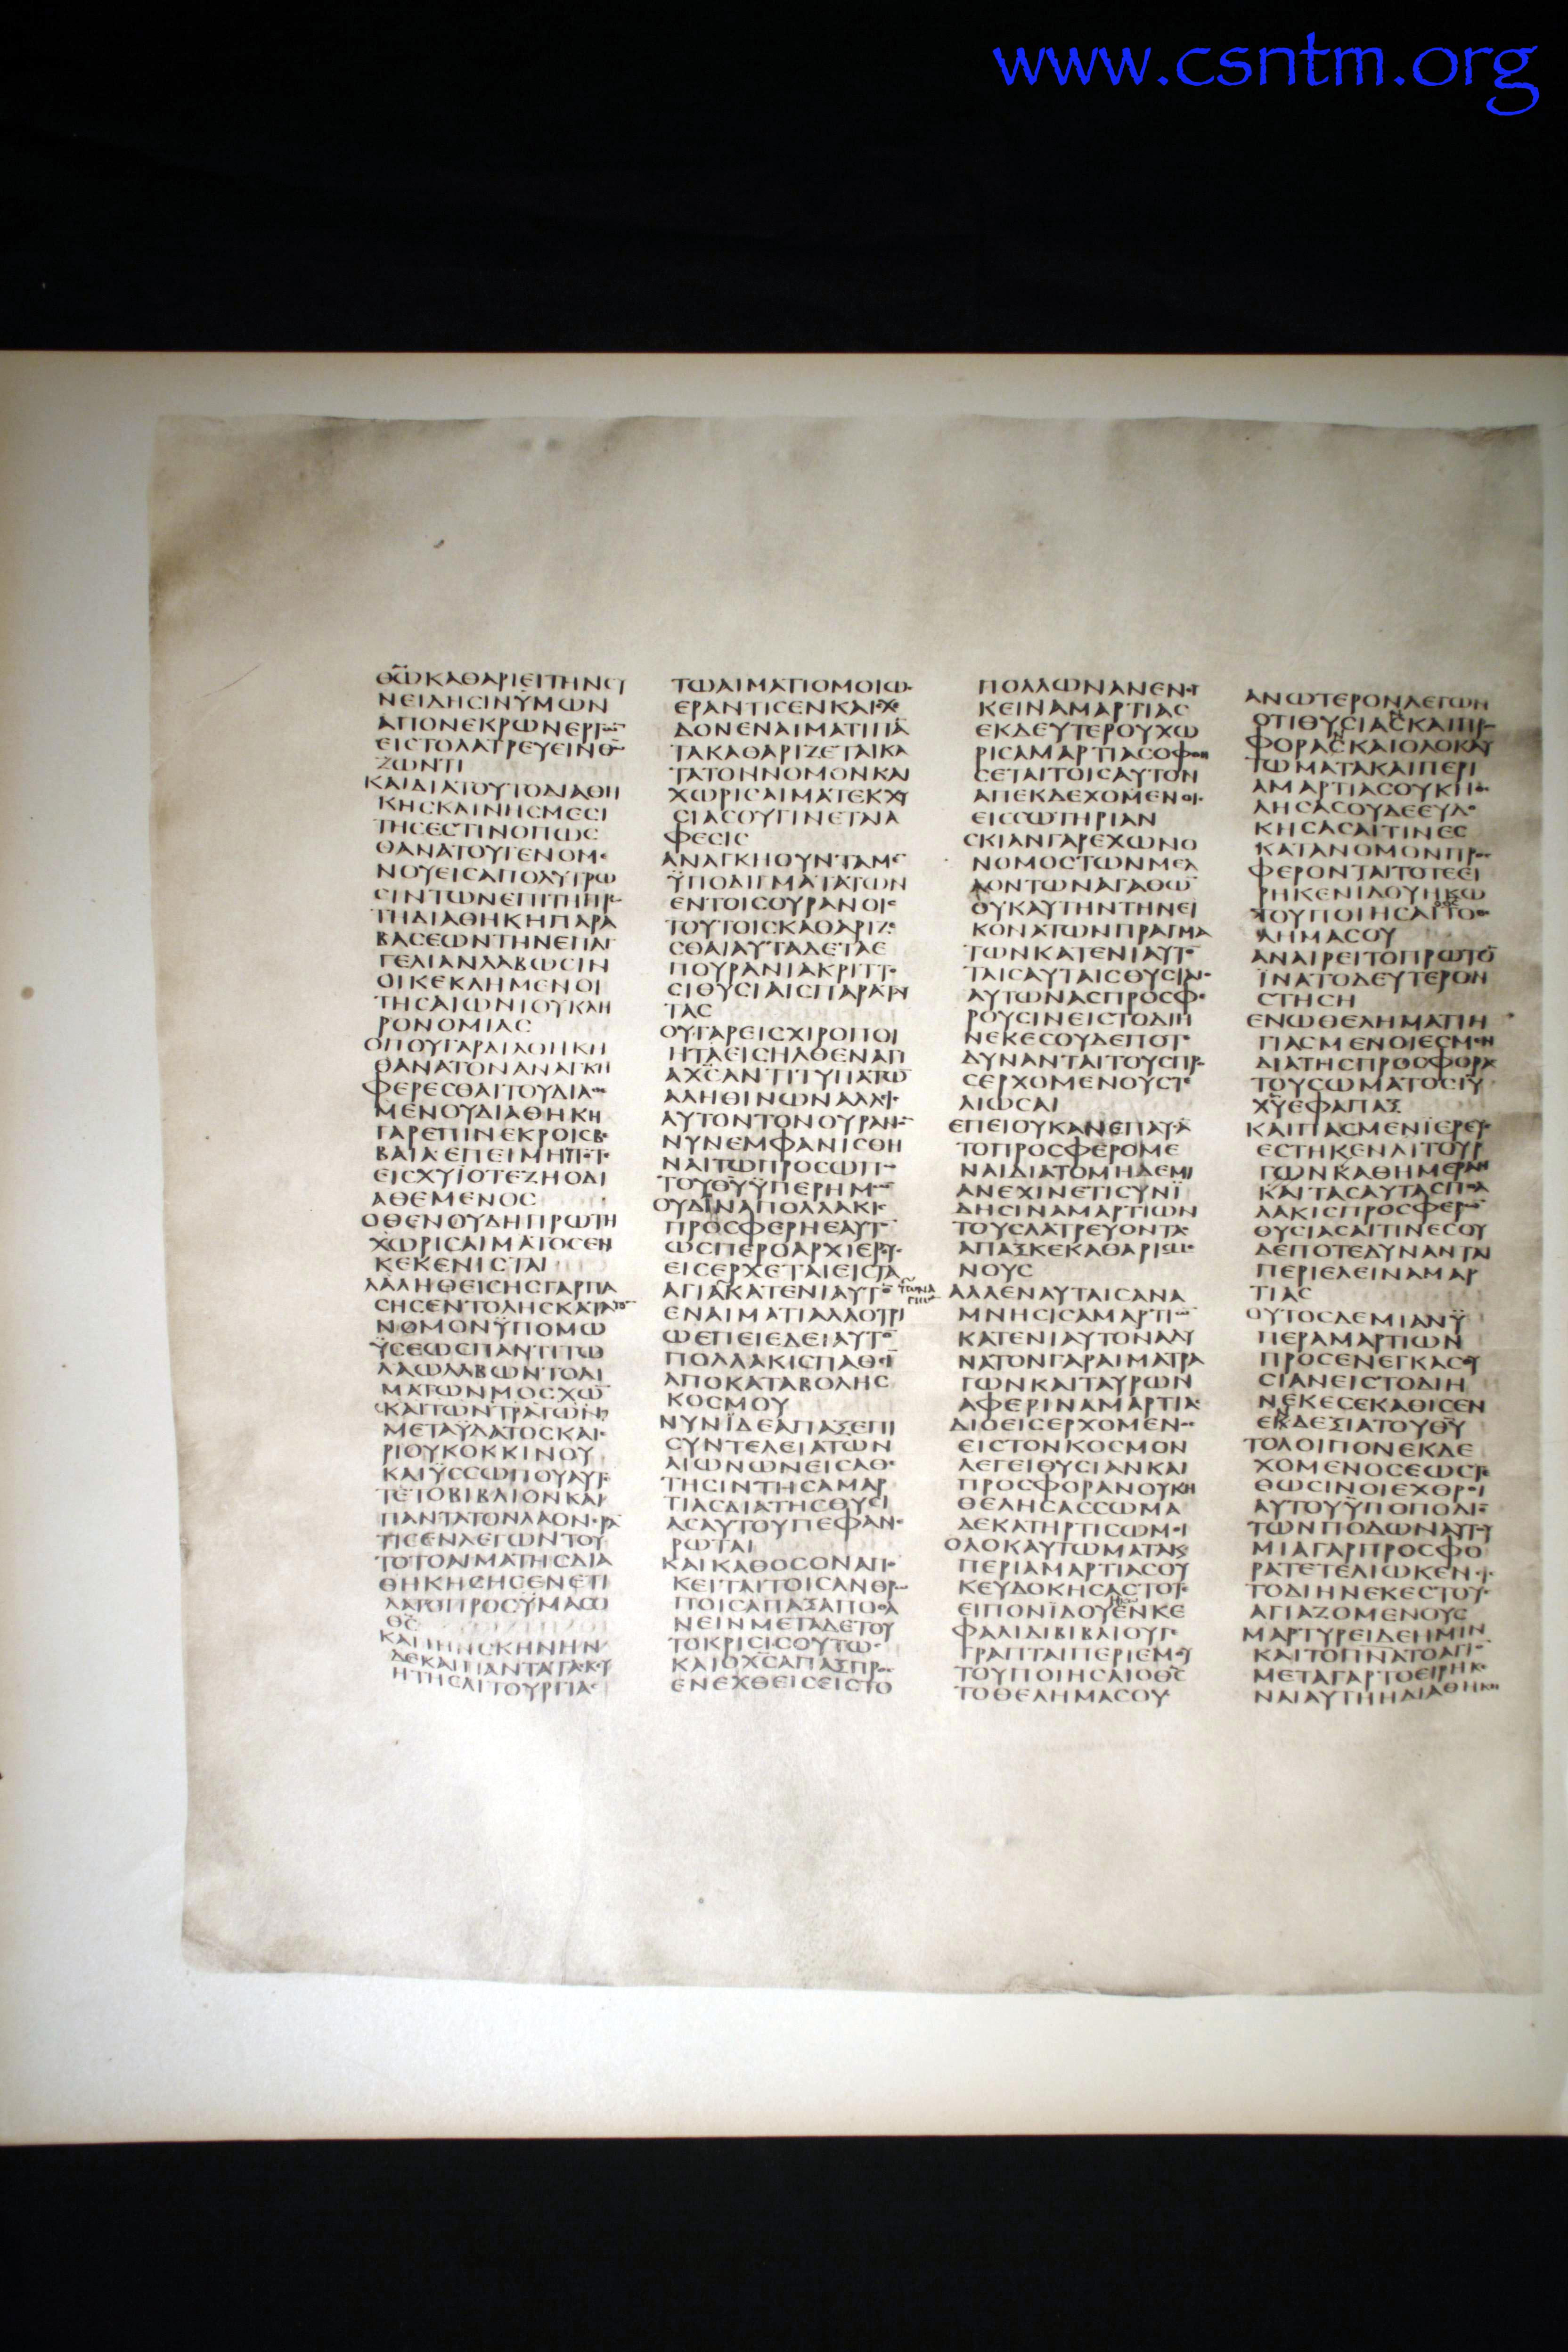 www.csntm.org
ΘΩ ΚΑΘΑΡΙΕΙ ΤΗΝ ΣΥ
ΝΕΙΔΗCΙΝ ΫΜΩΝ
ΑΠΟ ΝΕΚΡΩΝ ΕΡΓ
ΕΙC ΤΟ ΛΑΤΡΕΥΕΙΝ ΘΩ
ΖΩΝΤΙ
ΚΑΙ ΔΙΑ ΤΟΥΤΟ ΔΙΑΘΗ
ΚΗC ΚΑΙΝΗC ΜΕCΙ
ΤΗC ΕCΤΙΝ ΟΠΩC
ΘΑΝΑΤΟΥ ΓΕΝΟΜΕ
ΝΟΥ ΕΙC ΑΠΟΛΥΤΡΩ
CΙΝ ΤΩΝ ΕΠΙ ΤΗ ΠΡΩ
ΤΗ ΔΙΑΘΗΚΗ ΠΑΡΑ
ΒΑCΕΩΝ ΤΗΝ ΕΠΑΓ
ΓΕΛΙΑΝ ΛΑΒΩCΙΝ
ΟΙ ΚΕΚΛΗΜΕΝΟΙ
ΤΗC ΑΙΩΝΙΟΥ ΚΛΗ
ΡΟΝΟΜΙΑC
ΟΠΟΥ ΓΑΡ ΔΙΑΘΗΚΗ
ΘΑΝΑΤΟΝ ΑΝΑΓΚΗ
ΦΕΡΕCΘΑΙ ΤΟΥ ΔΙΑΘΕ
ΜΕΝΟΥ ΔΙΑΘΗΚΗ
ΓΑΡ ΕΠΙ ΝΕΚΡΟΙC ΒΕ
ΒΑΙΑ ΕΠΕΙ ΜΗΠΟΤΕ
ΕΙCΧΥΪ ΟΤΕ ΖΗ Ο ΔΙ
ΑΘΕΜΕΝΟC
ΟΘΕΝ ΟΥΔΗ ΠΡΩΤΗ
ΧΩΡΙC ΑΙΜΑΤΟC ΕΝ
ΚΕΚΕΝΙCΤΑΙ
ΛΑΛΗΘΕΙCΗC ΓΑΡ ΠΑ
CΗC ΕΝΤΟΛΗC ΚΑΤΑ ΤΟΝ
ΝΟΜΟΝ ΫΠΟ ΜΩ
ΫCΕΩC ΠΑΝΤΙ ΤΩ
ΛΑΩ ΛΑΒΩΝ ΤΟ ΑΙ
ΜΑ ΤΩΝ ΜΟCΧΩ
ΚΑΙ ΤΩΝ ΤΡΑΓΩΝ
ΜΕΤΑ ΫΔΑΤΟC ΚΑΙ Ε
ΡΙΟΥ ΚΟΚΚΙΝΟΥ
ΚΑΙ ΫCCΩΠΟΥ ΑΥΤΟ
ΤΕ ΤΟ ΒΙΒΛΙΟΝ ΚΑΙ
ΠΑΝΤΑ ΤΟΝ ΛΑΟΝ ΕΡΑ
ΤΙCΕΝ ΛΕΓΩΝ ΤΟΥ
ΤΟ ΤΟ ΑΙΜΑ ΤΗC ΔΙΑ
ΘΗΚΗC ΗC ΕΝΕΤΙ
ΛΑΤΟ ΠΡΟC ΫΜΑC Ο
ΘC
ΚΑΙ ΤΗΝ CΚΗΝΗΝ
ΔΕ ΚΑΙ ΠΑΝΤΑ ΤΑ CΚΕΥ
Η ΤΗC ΛΙΤΟΥΡΓΙΑC
ΤΩ ΑΙΜΑΤΙ ΟΜΟΙΩC
ΕΡΑΝΤΙCΕΝ ΚΑΙ CΧΕ
ΔΟΝ ΕΝ ΑΙΜΑΤΙ ΠΑ
ΤΑ ΚΑΘΑΡΙΖΕΤΑΙ ΚΑ
ΤΑ ΤΟΝ ΝΟΜΟΝ ΚΑΙ
ΧΩΡΙC ΑΙΜΑΤΕΚΧΥ
CΙΑC ΟΥ ΓΙΝΕΤΑΙ Α
ΦΕCΙC
ΑΝΑΓΚΗ ΟΥΝ ΤΑ ΜΕ
ΫΠΟΔΙΓΜΑΤΑ ΤΩΝ
ΕΝ ΤΟΙC ΟΥΡΑΝΟΙC
ΤΟΥΤΟΙC ΚΑΘΑΡΙΖΕ
CΘΑΙ ΑΥΤΑ ΔΕ ΤΑ Ε
ΠΟΥΡΑΝΙΑ ΚΡΙΤΤΟ
CΙ ΘΥCΙΑΙC ΠΑΡΑ ΤΑΥ
ΤΑC
ΟΥ ΓΑΡ ΕΙC ΧΙΡΟΠΟΙ
ΗΤΑ ΕΙCΗΛΘΕΝ ΑΓΙ
Α ΧC ΑΝΤΙΤΥΠΑ ΤΩ
ΑΛΗΘΙΝΩΝ ΑΛΛ ΕΙC
ΑΥΤΟΝ ΤΟΝ ΟΥΡΑΝΟ
ΝΥΝ ΕΜΦΑΝΙCΘΗ
ΝΑΙ ΤΩ ΠΡΟCΩΠΩ
ΤΟΥ ΘΥ ΫΠΕΡ ΗΜΩ
ΟΥΔ ΪΝΑ ΠΟΛΛΑΚΙC
ΠΡΟCΦΕΡΗ ΕΑΥΤΟ
ΩCΠΕΡ Ο ΑΡΧΙΕΡΕΥC
ΕΙCΕΡΧΕΤΑΙ ΕΙC ΤΑ
ΑΓΙΑ ΚΑΤ ΕΝΙΑΥΤΟ
ΕΝ ΑΙΜΑΤΙ ΑΛΛΟΤΡΙ
Ω ΕΠΕΙ ΕΔΕΙ ΑΥΤΟ
ΠΟΛΛΑΚΙC ΠΑΘΕΙ
ΑΠΟ ΚΑΤΑΒΟΛΗC
ΚΟCΜΟΥ
ΝΥΝΪ ΔΕ ΑΠΑΞ ΕΠΙ
CΥΝΤΕΛΕΙΑ ΤΩΝ
ΑΙΩΝΩΝ ΕΙC ΑΘΕ
ΤΗCΙΝ ΤΗC ΑΜΑΡ
ΤΙΑC ΔΙΑ ΤΗC ΘΥCΙ
ΑC ΑΥΤΟΥ ΠΕΦΑΝΕ
ΡΩΤΑΙ
ΚΑΙ ΚΑΘ ΟCΟΝ ΑΠΟ
ΚΕΙΤΑΙ ΤΟΙC ΑΝΘΡΩ
ΠΟΙC ΑΠΑΞ ΑΠΟΘΑ
ΝΕΙΝ ΜΕΤΑ ΔΕ ΤΟΥ
ΤΟ ΚΡΙCΙC ΟΥΤΩC
ΚΑΙ Ο ΧC ΑΠΑΞ ΠΡΟC
ΕΝΕΧΘΕΙC ΕΙC ΤΟ
ΠΟΛΛΩΝ ΑΝΕΝΕΓ
ΚΕΙΝ ΑΜΑΡΤΙΑC
ΕΚ ΔΕΥΤΕΡΟΥ ΧΩ
ΡΙC ΑΜΑΡΤΙΑC ΟΦΘΗ
CΕΤΑΙ ΤΟΙC ΑΥΤΟΝ
ΑΠΕΚΔΕΧΟΜΕΝΟΙC
ΕΙC CΩΤΗΡΙΑΝ
CΚΙΑΝ ΓΑΡ ΕΧΩΝ Ο
ΝΟΜΟC ΤΩΝ ΜΕΛ
ΛΟΝΤΩΝ ΑΓΑΘΩ
ΟΥΚ ΑΥΤΗΝ ΤΗΝ ΕΙ
ΚΟΝΑ ΤΩΝ ΠΡΑΓΜΑ
ΤΩΝ ΚΑΤ ΕΝΙΑΥΤΟ
ΤΑΙC ΑΥΤΑΙC ΘΥCΙΑΙC
ΑΥΤΩΝ ΑC ΠΡΟCΦΕ
ΡΟΥCΙΝ ΕΙC ΤΟ ΔΙΗ
ΝΕΚΕC ΟΥΔΕΠΟΤΕ
ΔΥΝΑΝΤΑΙ ΤΟΥC ΠΡΟ
CΕΡΧΟΜΕΝΟΥC ΤΕ
ΛΙΩCΑΙ
ΕΠΕΙ ΟΥΚ ΑΝ ΕΠΑΥCΑ
ΤΟ ΠΡΟCΦΕΡΟΜΕ
ΝΑΙ ΔΙΑ ΤΟ ΜΗΔΕΜΙ
ΑΝ ΕΧΙΝ ΕΤΙ CΥΝΪ
ΔΗCΙΝ ΑΜΑΡΤΙΩΝ
ΤΟΥC ΛΑΤΡΕΥΟΝΤΑC
ΑΠΑΞ ΚΕΚΑΘΑΡΙCΜΕ
ΝΟΥC
ΑΛΛ ΕΝ ΑΥΤΑΙC ΑΝΑ
ΜΝΗCΙC ΑΜΑΡΤΙΩ
ΚΑΤ ΕΝΙΑΥΤΟΝ ΑΔΥ
ΝΑΤΟΝ ΓΑΡ ΑΙΜΑ ΤΡΑ
ΓΩΝ ΚΑΙ ΤΑΥΡΩΝ
ΑΦΕΡΙΝ ΑΜΑΡΤΙΑC
ΔΙΟ ΕΙCΕΡΧΟΜΕΝΟC
ΕΙC ΤΟΝ ΚΟCΜΟΝ
ΛΕΓΕΙ ΘΥCΙΑΝ ΚΑΙ
ΠΡΟCΦΟΡΑΝ ΟΥΚ Η
ΘΕΛΗCΑC CΩΜΑ
ΔΕ ΚΑΤΗΡΤΙCΩ ΜΟΙ
ΟΛΟΚΑΥΤΩΜΑΤΑ Κ
ΠΕΡΙ ΑΜΑΡΤΙΑC ΟΥ
Κ ΕΥΔΟΚΗCΑC ΤΟΤΕ
ΕΙΠΟΝ ΪΔΟΥ ΕΝ ΚΕ
ΦΑΛΙΔΙ ΒΙΒΛΙΟΥ ΓΕ
ΓΡΑΠΤΑΙ ΠΕΡΙ ΕΜΟΥ
ΤΟΥ ΠΟΙΗCΑΙ Ο ΘC
ΤΟ ΘΕΛΗΜΑ CΟΥ
ΑΝΩΤΕΡΟΝ ΛΕΓΩΝ
ΟΤΙ ΘΥCΙΑC ΚΑΙ ΠΡΟC
ΦΟΡΑC ΚΑΙ ΟΛΟΚΑΥ
ΤΩΜΑΤΑ ΚΑΙ ΠΕΡΙ
ΑΜΑΡΤΙΑC ΟΥΚ ΗΘΕ
ΛΗCΑC ΟΥΔΕ ΕΥΔΟ
ΚΗCΑC ΑΙΤΙΝΕC
ΚΑΤΑ ΝΟΜΟΝ ΠΡΟC
ΦΕΡΟΝΤΑΙ ΤΟΤΕ ΕΙ
ΡΗΚΕΝ ΙΔΟΥ ΗΚΩ
ΤΟΥ ΠΟΙΗCΑΙ ΤΟ ΘΕ
ΛΗΜΑ CΟΥ
ΑΝΑΙΡΕΙ ΤΟ ΠΡΩΤΟ
ΪΝΑ ΤΟ ΔΕΥΤΕΡΟΝ
CΤΗCΗ
ΕΝ Ω ΘΕΛΗΜΑΤΙ Η
ΓΙΑCΜΕΝΟΙ ΕCΜΕΝ
ΔΙΑ ΤΗC ΠΡΟCΦΟΡΑC
ΤΟΥ CΩΜΑΤΟC ΙΥ
ΧΥ ΕΦΑΠΑΞ
ΚΑΙ ΠΑC ΜΕΝ ΪΕΡΕΥC
ΕCΤΗΚΕΝ ΛΙΤΟΥΡ
ΓΩΝ ΚΑΘ ΗΜΕΡΑΝ
ΚΑΙ ΤΑC ΑΥΤΑC ΠΟΛ
ΛΑΚΙC ΠΡΟCΦΕΡΩ
ΘΥCΙΑC ΑΙΤΙΝΕC ΟΥ
ΔΕΠΟΤΕ ΔΥΝΑΝΤΑΙ
ΠΕΡΙΕΛΕΙΝ ΑΜΑΡ
ΤΙΑC
ΟΥΤΟC ΔΕ ΜΙΑΝ Ϋ
ΠΕΡ ΑΜΑΡΤΙΩΝ
ΠΡΟCΕΝΕΓΚΑC ΘΥ
CΙΑΝ ΕΙC ΤΟ ΔΙΗ
ΝΕΚΕC ΕΚΑΘΙCΕΝ
ΕΚ ΔΕΞΙΑ ΤΟΥ ΘΥ
ΤΟ ΛΟΙΠΟΝ ΕΚΔΕ
ΧΟΜΕΝΟC ΕΩC ΤΕ
ΘΩCΙΝ ΟΙ ΕΧΘΡΟΙ
ΑΥΤΟΥ ΫΠΟΠΟΔΙΟ
ΤΩΝ ΠΟΔΩΝ ΑΥΤΟΥ
ΜΙΑ ΓΑΡ ΠΡΟCΦΟ
ΡΑ ΤΕΤΕΛΙΩΚΕΝ ΕΙC
ΤΟ ΔΙΗΝΕΚΕC ΤΟΥC
ΑΓΙΑΖΟΜΕΝΟΥC
ΜΑΡΤΥΡΕΙ ΔΕ ΗΜΙΝ
ΚΑΙ ΤΟ ΠΝΑ ΤΟ ΑΓΙΟ
ΜΕΤΑ ΓΑΡ ΤΟ ΕΙΡΗΚΕ
ΝΑΙ ΑΥΤΗ Η ΔΙΑΘΗΚΗ